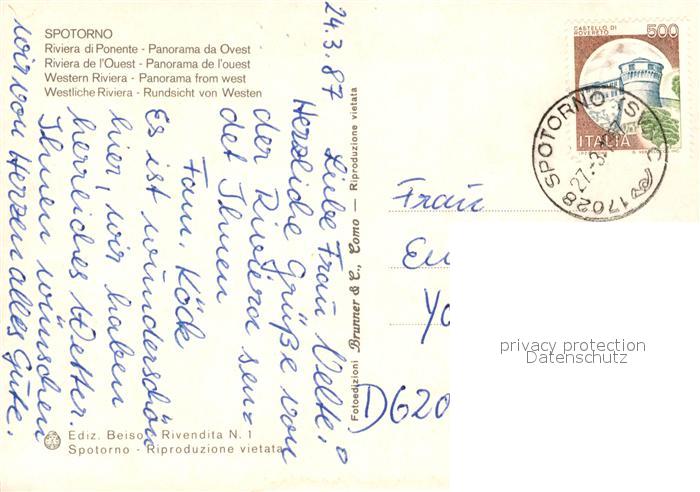 SPOTORNO
Riviera di Ponente - Panorama da Ovest
Riviera de l'Ouest - Panorama de l'ouest
Western Riviera - Panorama from west
Westliche Riviera - Rundsicht von Westen
24.3.87
Liebe Frau Welte!
Herzliche Grüße von
der Riviera sen=
det Ihnen
Fam. Köck
Es ist wunderschön
hier, wir haben
herrliches Wetter.
Ihnen wünschen
wir von Herzen alles Gute.
Ediz. Beiso - Rivendita N. 1
Spotorno - Riproduzione vietata
Fotoedizioni Brunner & C., Como — Riproduzione vietata
CASTELLO DI
ROVERETO
500
ITALIA
17028 SPOTORNO (S
27.-3.
Frau
D620
privacy protection
Datenschutz